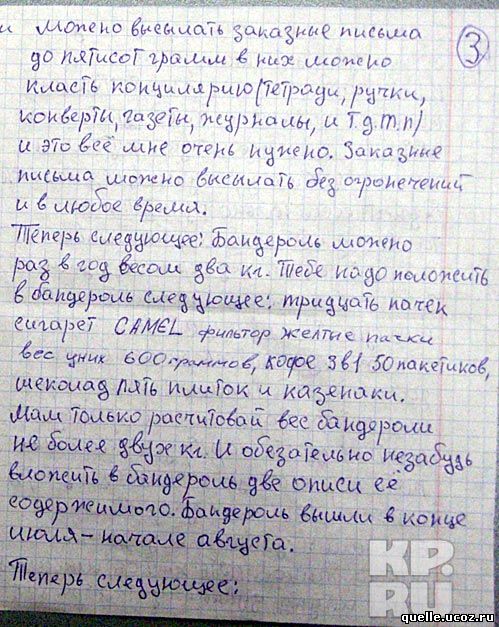 и можено высылать заказные письма
3
до пятисот грамм в них можено
класть концилярию (тетради, ручки,
конверты, газеты, журналы, и т.д.т.п)
и это всё мне очень нужено. Заказные
письма можено высылать без огронечений
и в любое время.
Теперь следующее: Бандероль можено
раз в год весом два кг. Тебе надо положить
в бандероль следующее: тридцать пачек
сигарет CAMEL фильтор желтые пачки
вес уних 600 граммов, кофе 3в1 50 пакетиков,
шеколад пять плиток и казенаки.
Мам только расчитовай вес бандероли
не более двух кг. И обезательно незабудь
вложить в бандероль две описи её
содержимого. Бандероль вышли в конце
июля – начале августа.
Теперь следующее:
KP.
RU
quelle.ucoz.ru